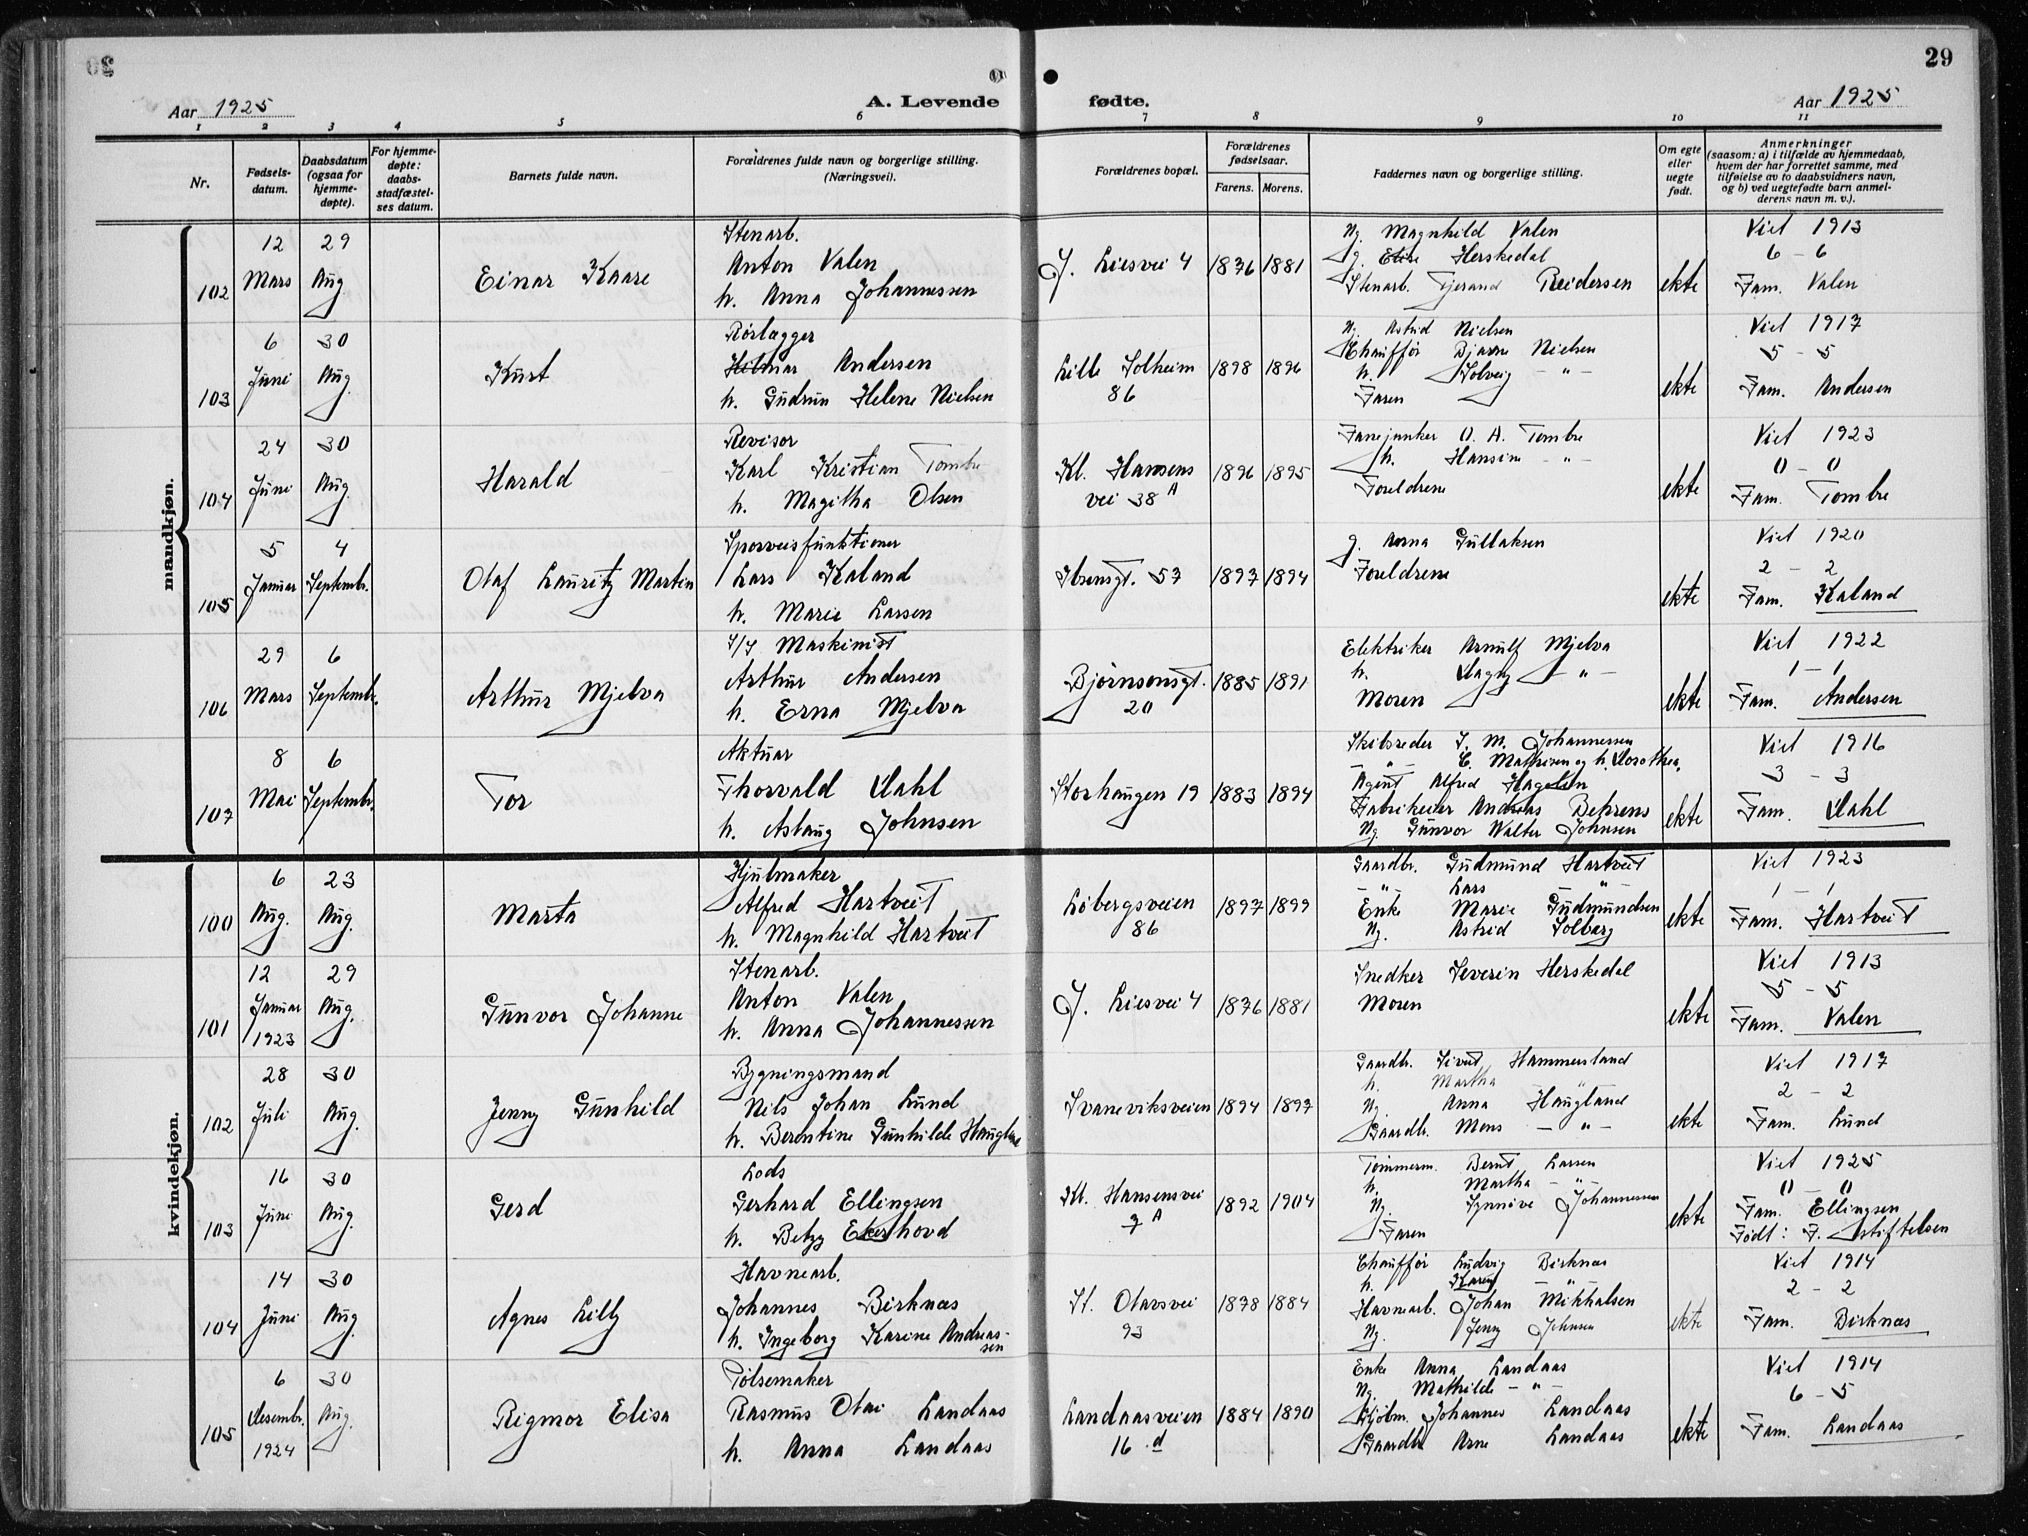 29
Aar 1925
A. Levende
fødte.
Aar 1925
1 2 3 4 5 6 7 8 9 10 11
Nr.
Fødsels-
datum.
Daabsdatum
(ogsaa for
hjemme-
døpte).
For hjemme-
døpte:
daabs-
stadfæstel-
ses datum.
Barnets fulde navn.
Forældrenes fulde navn og borgerlige stilling.
(Næringsvei).
Forældrenes bopæl.
Forældrenes
fødselsaar.
Farens. Morens.
Faddernes navn og borgerlige stilling.
Om egte
eller
uegte
født.
Anmerkninger
(saasom: a) i tilfælde av hjemmedaab,
hvem der har forrettet samme, med
tilføielse av to daabsvidners navn,
og b) ved uegtefødte barn anmel-
derens navn m. v.).
mandkjøn.
102
12
Mars
29
Aug.
Einar Kaare
Stenarb.
Anton Valen
h. Anna Johannessen
J. Liesvei 4
1876 1881
Ng. Magnhild Valen
g. Elise Herskedal
Stenarb. Tjerand Reidersen
ekte
Viet 1913
6 - 6
Fam. Valen
103
6
Juni
30
Aug.
Kurt
Rørlægger
Hilmar Andersen
h. Gudrun Helene Nielsen
Lille Solheim
86
1898 1896
Ng. Astrid Nielsen
Chauffør Bjarne Nielsen
h. Solveig - " -
Faren
ekte
Viet 1917
5 - 5
Fam. Andersen
104
24
Juni
30
Aug.
Harald
Revisor
Karl Kristian Tombre
h. Magitha Olsen
Kl. Hansens
vei 38 A
1896 1895
Fanejunker O. A. Tombre
h. Hansine - " -
Foreldrene
ekte
Viet 1923
0 - 0
Fam. Tombre
105
5
Januar
4
Septembr.
Olaf Lauritz Martin
Sporveisfunktionær
Lars Kaland
h. Marie Larsen
Ibsensgt. 57
1897 1894
g. Anna Gullaksen
Foreldrene
ekte
Viet 1920
2 - 2
Fam. Kaland
106
29
Mars
6
Septembr.
Arthur Mjelva
S/S Maskinist
Arthur Andersen
h. Erna Mjelva
Bjørnsonsgt.
20
1885 1891
Elektriker Arnulf Mjelva
h. Dagny - " -
Moren
ekte
Viet 1922
1 - 1
Fam. Andersen
107
8
Mai
6
Septembr.
Tor
Aktuar
Thorvald Dahl
h. Aslaug Johnsen
Storhaugen 19
1883 1894
Skibsreder S. M. Johannessen
- " - C. Mathisen og h. Dorothea.
Agent Alfred Hagelsen
Fabrikeier Andreas Behrens
Ng. Gunvor Walter Johnsen
ekte
Viet 1916
3 - 3
Fam. Dahl
kvindekjøn.
100
6
Aug.
23
Aug.
Marta
Hjulmaker
Alfred Hartveit
h. Magnhild Hartveit
Løbergsveien
86
1897 1899
Gaardbr. Gudmund Hartveit
- " - Lars "
Enke Marie Gudmundsen
Ng. Astrid Solberg
ekte
Viet 1923
1 - 1
Fam. Hartveit
101
12
Januar
1923
29
Aug.
Gunvor Johanne
Stenarb.
Anton Valen
h. Anna Johannessen
J. Liesvei 4
1876 1881
Snedker Severin Herskedal
Moren
ekte
Viet 1913
5 - 5
Fam. Valen
102
28
Juli
30
Aug.
Jenny Gunhild
Bygningsmand
Nils Johan Lund
h. Berentine Gunhilde Haugland
Svaneviksveien
1894 1897
Gaardbr. Sivert Hammersland
h. Martha "
Ng. Anna Haugland
Gaardbr. Mons - " -
ekte
Viet 1917
2 - 2
Fam. Lund
103
16
Juni
30
Aug.
Gerd
Lods
Gerhard Ellingsen
h. Betzy Ekerhovd
Kl. Hansensvei
7 A
1892 1904
Tømmerm. Bernt Larsen
h. Martha - " -
Ng. Synnøve Johannessen
Faren
ekte
Viet 1925
0 - 0
Fam. Ellingsen
Født: F. Stiftelsen
104
14
Juni
30
Aug.
Agnes Lilly
Havnearb.
Johannes Birknæs
h. Ingeborg Karine Andreas-
sen
St. Olavsvei
93
1878 1884
Chauffør Ludvig Birknæs
h. Karen - " -
Havnearb. Johan Mikkalsen
Ng. Jenny Johnsen
ekte
Viet 1914
2 - 2
Fam. Birknæs
105
6
Desembr.
1924
30
Aug.
Rigmor Elisa
Pølsemaker
Rasmus Olai Landaas
h. Anna Landaas
Landaasveien
16 d
1884 1890
Enke Anna Landaas
Ng. Mathilde - " -
Kjøbm. Johannes Landaas
Gaardbr. Arne Landaas
ekte
Viet 1914
6 - 5
Fam. Landaas